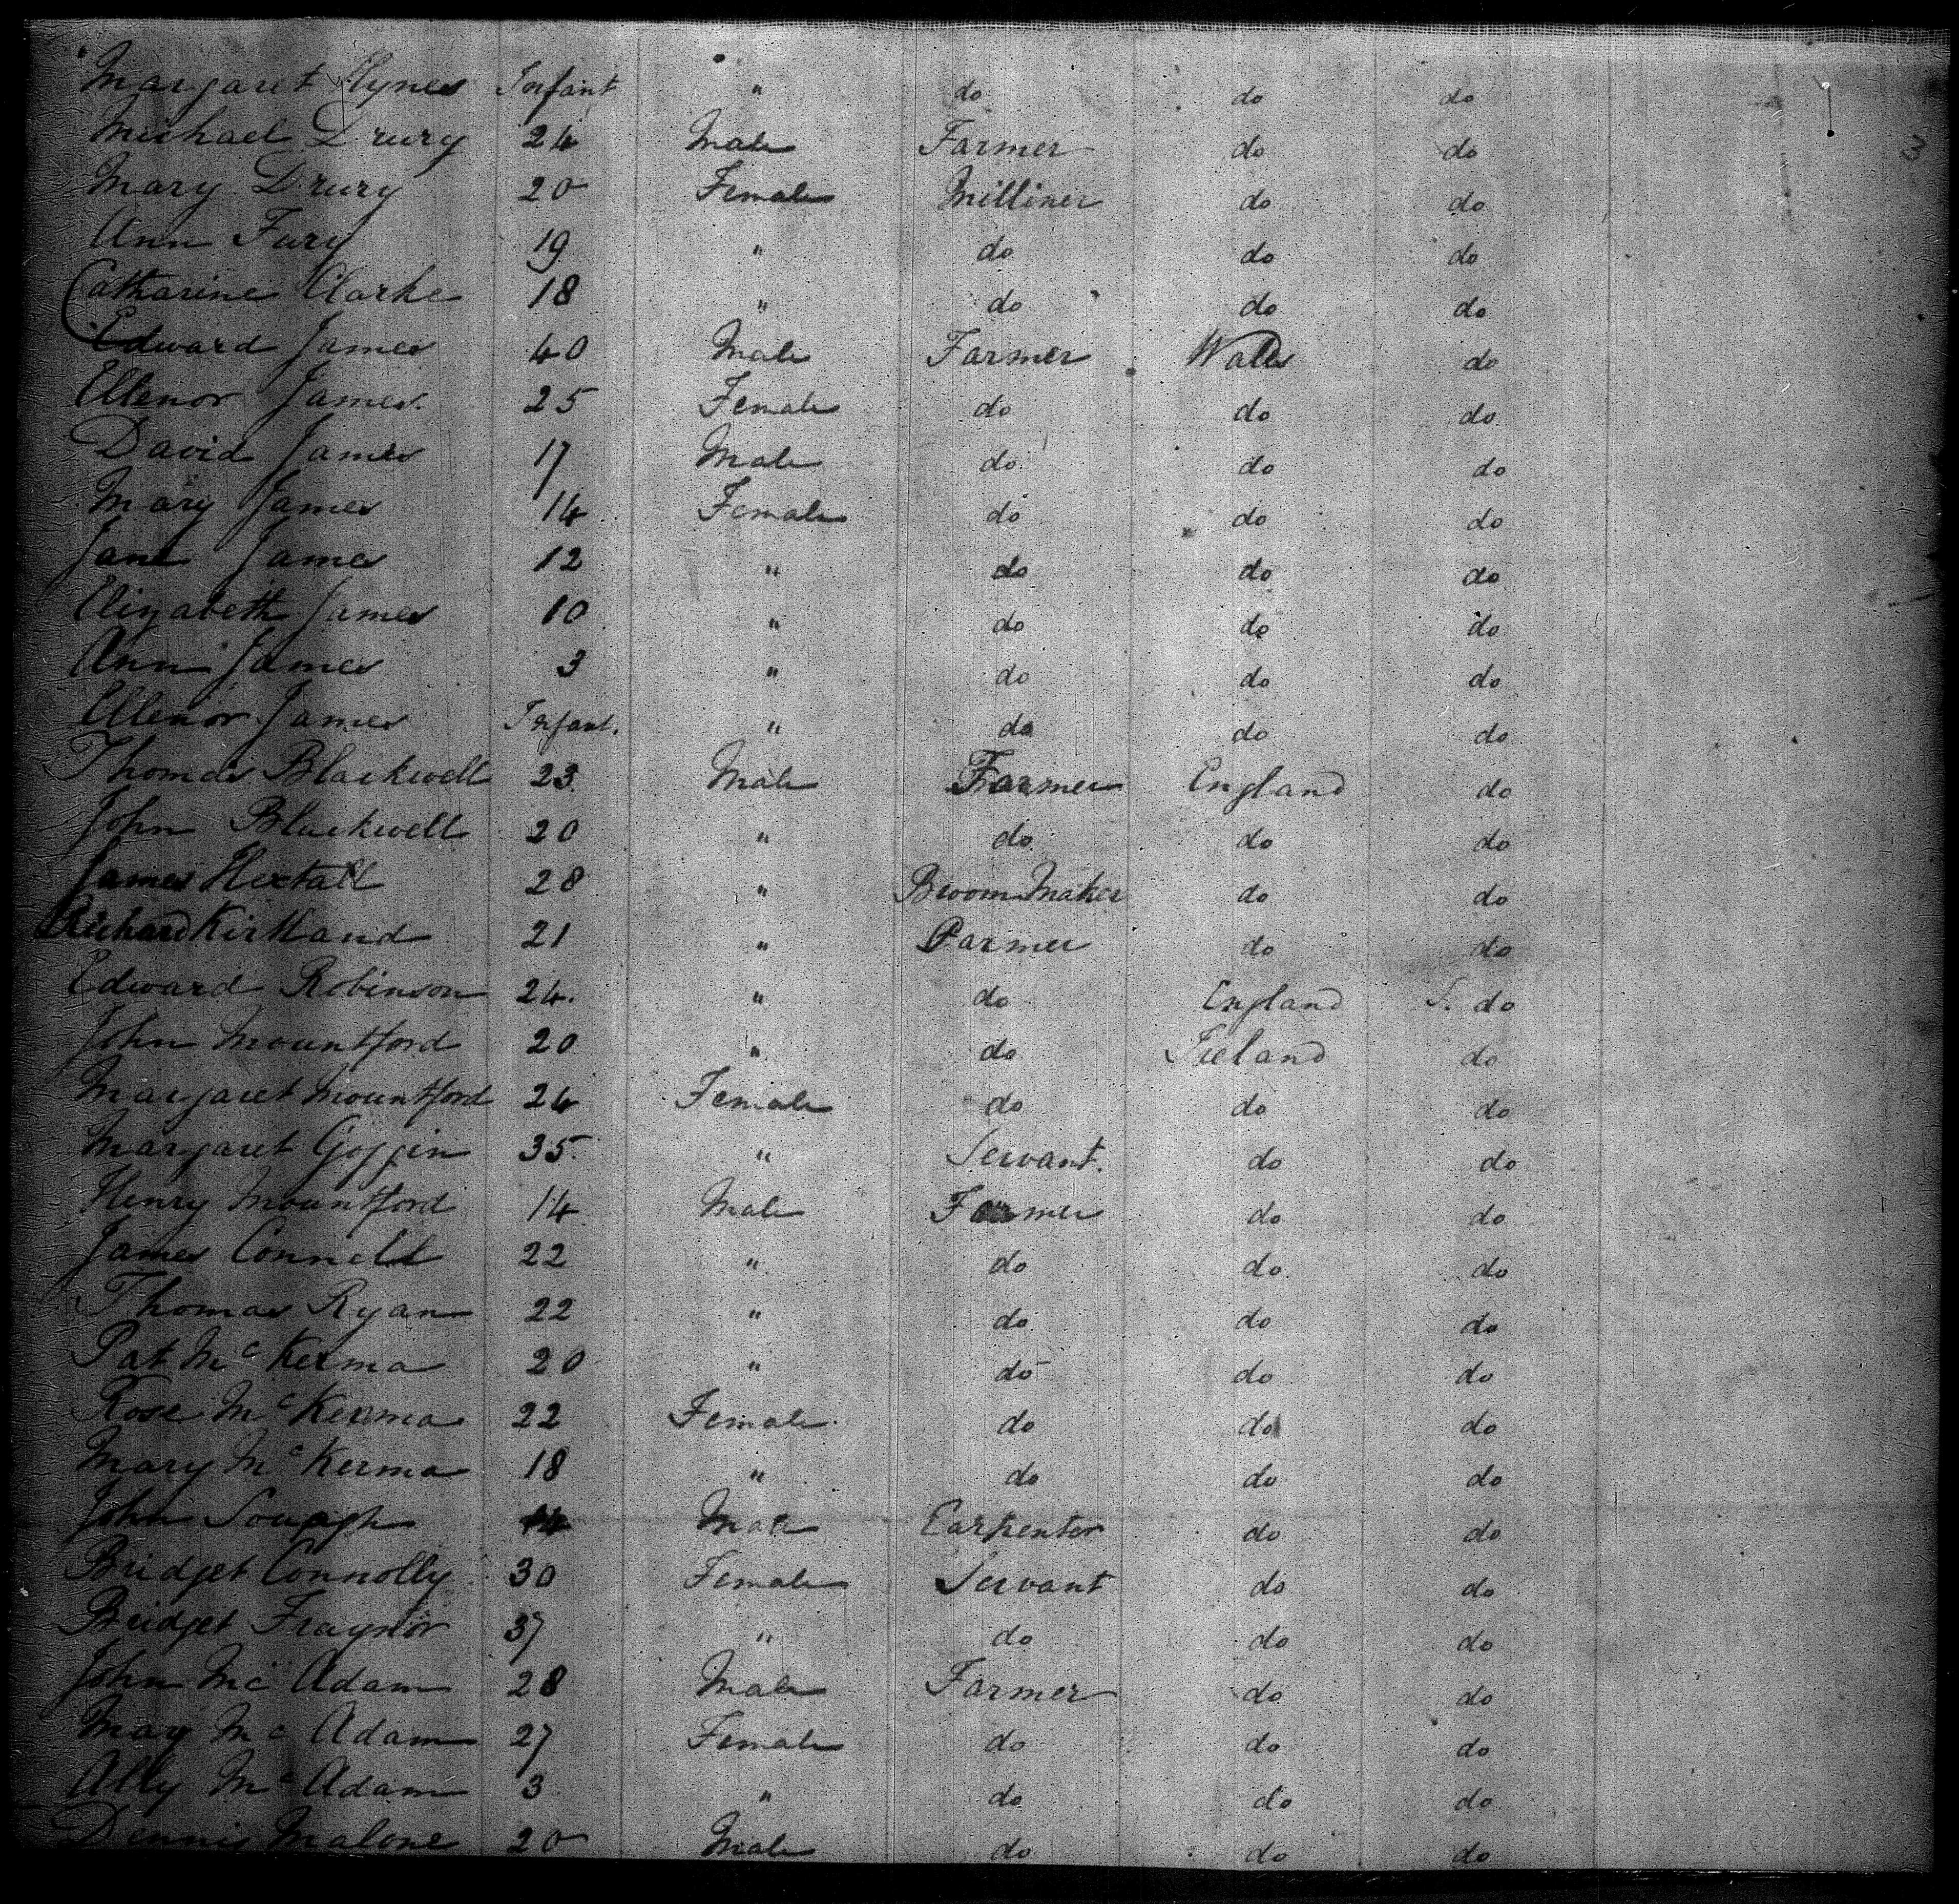 Margaret Hynes Infant " do do do
Michael Drury 24 Male Farmer do do 3
Mary Drury 20 Female Milliner do do
Ann Fury 19 " do do do
Catharine Clarke 18 " do do do
Edward James 40 Male Farmer Wales do
Ellenor James. 25 Female do do do
David James 17 Male do do do
Mary James 14 Female do do do
Jane James 12 " do do do
Elizabeth James 10 " do do do
Ann James 3 " do do do
Ellenor James Infant. " do do do
Thomas Blackwell 23. Male Farmer England do
John Blackwell 20 " do do do
James Hextall 28 " Broom Maker do do
Richard Kirkland 21 " Farmer do do
Edward Robinson 24. " do England do
John Mountford 20 " do Ireland do
Margaret Mountford 24 Female do do do
Margaret Goggin 35. " Servant. do do
Henry Mountford 14 Male Farmer do do
James Connell 22 " do do do
Thomas Ryan 22 " do do do
Pat Mc Kerma 20 " do do do
Rose Mc Kerma 22 Female do do do
Mary Mc Kerma 18 " do do do
John Male Carpenter do do
Bridget Connolly 30 Female Servant do do
Bridget Traynor 37 " do do do
John Mc Adam 28 Male Farmer do do
May Mc Adam 27 Female do do do
Ally Mc Adam 3 " do do do
Dennis Malone 20 Male do do do